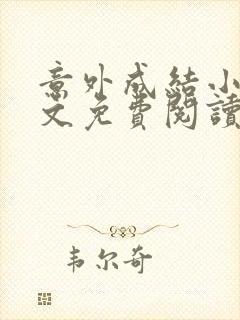 意外成結小
文免費閱讀
韦尔奇